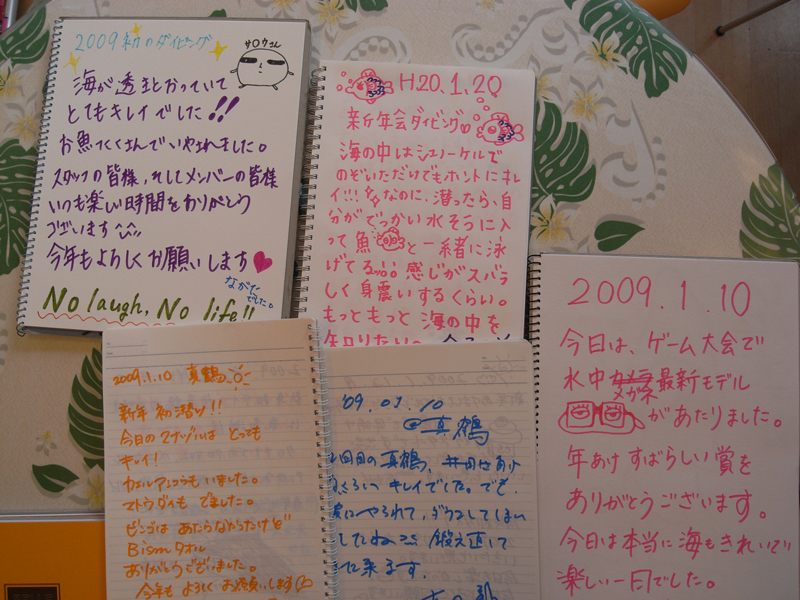 2009初のダイビング
サロウさん
海が透きとおっていて
とてもキレイでした!!
お魚たくさんでいやされました。
スタッフの皆様、そしてメンバーの皆様
いつも楽しい時間をありがとう
ございます
今年もよろしくお願いします
ながた
でした。
No laugh, No life!!
H20.1.20
新年会ダイビング
海の中はシュノーケルで
のぞいただけでもホントにキレ
イ!!!なのに、潜ったら、自
分がでっかい水そうに入
って魚と一緒に泳
げてる感じがスバラ
しく身震いするくらい。
もっともっと海の中を
知りたい。
2009.1.10 真鶴
新年初潜り!!
今日のマナヅルは とっても
キレイ!
カエルアンコウもいました。
マトウダイもでました。
ビンゴは あたらなかったけど
Bism タオル
ありがとうございました。
今年も よろしくお願いします
'09.01.10
@真鶴
回目の真鶴、
キレイでした。でも、
にやられて、ダウンしてしまい
したね 鍛え直して
た来ます。
2009.1.10
今日は、ゲーム大会で
水中カメラメガネ最新モデル
があたりました。
年あけすばらしい賞を
ありがとうございます。
今日は本当に海もきれいで
楽しい一日でした。